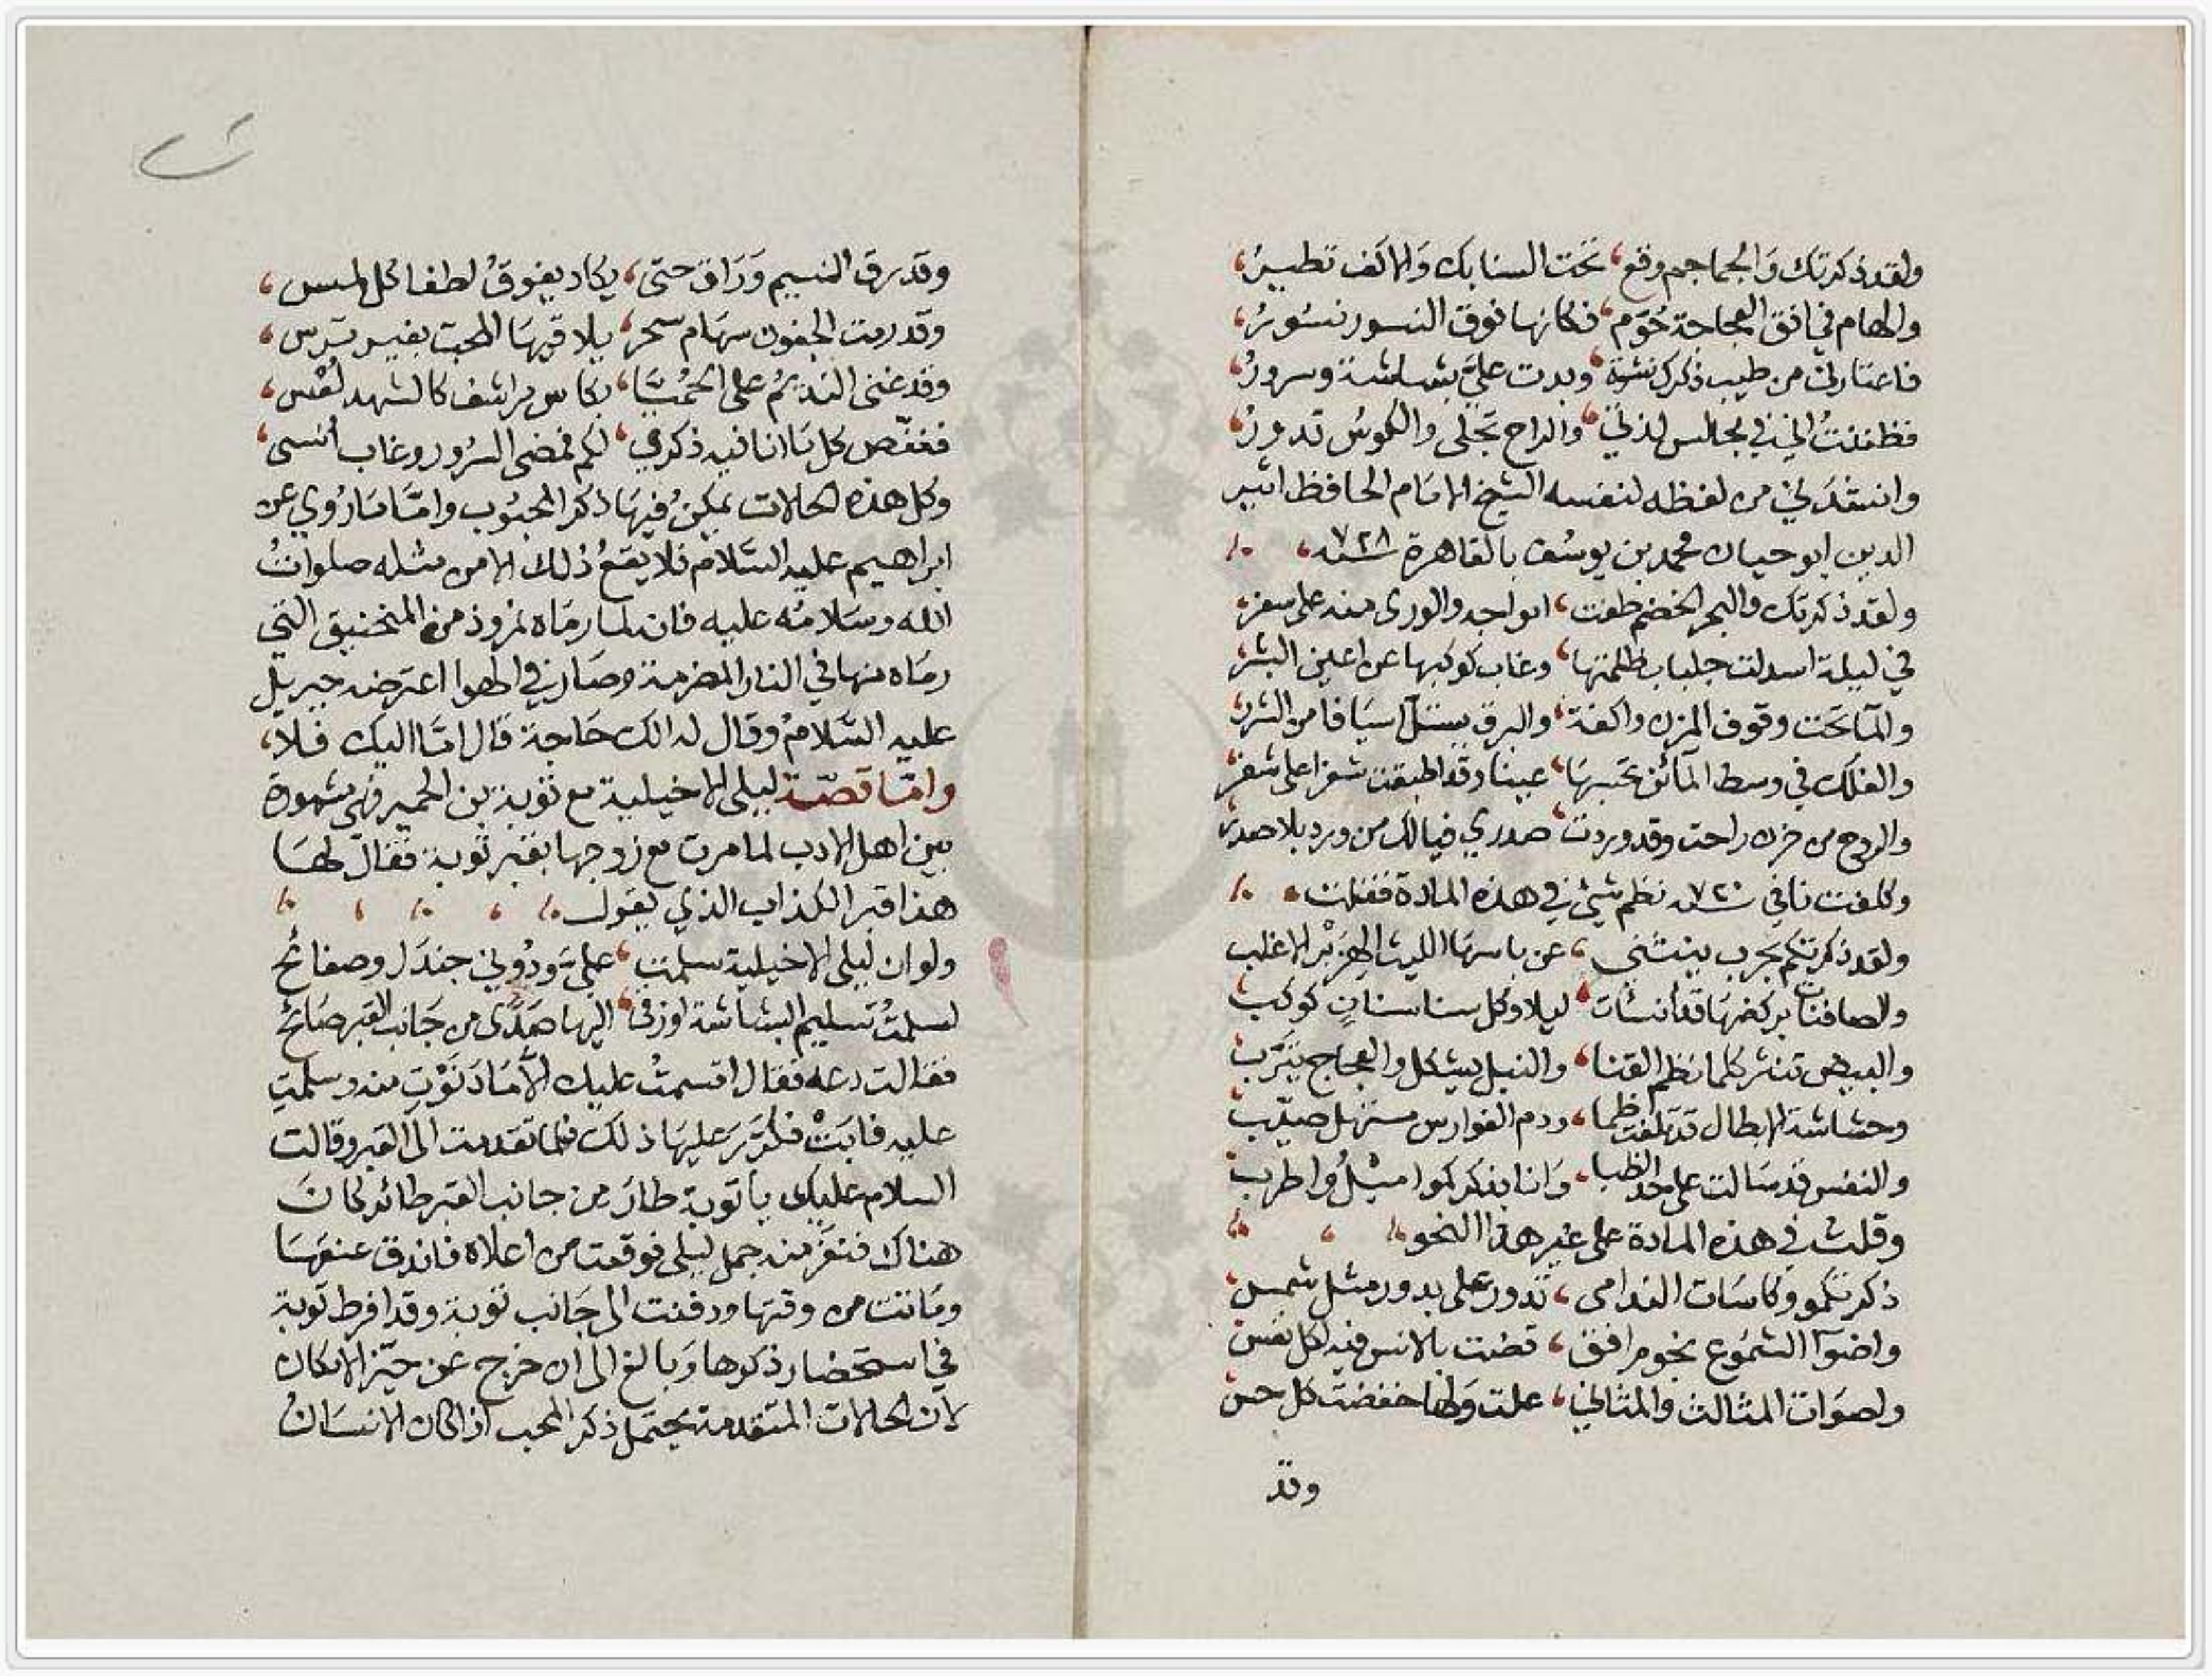 ولقد ذكرتك وَالجماجم وقع، تحت السنابك وَالاكف تطيرُ،
والهام في افق العجاجة حُوّم، فكانها فوق النسور نسُورُ،
فاعتادني من طيب ذكرك نشوة، وبدت عليَّ بشاشة وسرورُ،
فظننتُ اني في مجالس لذتي، والراح تجلى والكوسُ تدورُ،
وانشدَني من لفظه لنفسه الشيخ الامَام الحافظ اثير
الدين ابو حيان محمد بن يوسُف بالقاهرة سنه ٧٢٨،
ولقد ذكرتك والبحر الخضم طغت، امواجه والورى منه على سفر،
في ليلة اسدلت جلباب ظلمتها، وغاب كوكبها عن اعين البشر،
والمآ تحت وقوف المزن واكفة، والبرق يستل اسيَافا من الشرر،
والفلك في وسط المآئن تحسبهَا، عينا وقد اطبقت شفرا على شفر،
والروح من حزن راحت وقد وردت، صدري فيالك من ورد بلا صدر،
وكلفت نافي سنه ٧٢٠ نظم شيئ في هذه المادة فقلت،
ولقد ذكرتكم بحرب ينثني، عن باسهَا الليث الهِزَبْر الاغلب
والصافنات بركضهَا قد انشات، ليلا وكل سنا سنانٍ كوكب
والبيض تنثر كلما نظم القنا، والنبل يشكل والعجاج يترّب
وحشاشة الابطال قد تلفت ظما، ودم الفوارس مستهل صيّب
والنفس قد سَالت على حد الظبا، وَانا بذكركموا اميْلُ واطرب
وقلت في هذه المادة على غير هذا النحو
ذكرتكمو وكاسَات الندامى، تدور على بدور مثل شمس
واضوآ الشمُوع نجوم افق، قضت بالانس فيه لكل نفس
واصوَات المثالث والمثاني، علت وَلها خفضت كل حس
وقد
وقد رق النسيم وَرَاق حتى، يكاد يفوقُ لطفا كل لمس،
وقد رمت الجفون سهَام سحر، يلاقيهَا المحب بغير ترس،
وقد غنى النديمُ على الحُميَّا، بكاس مراشف كالشهد لُعْس،
فنغّص كل مَا انا فيه ذكري، لكم فمضى السُرور وغاب أنسى،
وكل هذه الحالات يمكنُ فيهَا ذكر المحبُوب وامَّا مَا رُوي عن
ابراهيم عليه السَّلام فلا يقعُ ذلك الا من مثله صلواتُ
الله وسَلامُه عليه فانه لما رمَاه نمروذ من المنجنيق التي
رمَاه منها في النار المضرمة وصَار في الهوا اعترضه جبريل
عليه السَّلامُ وقال له الك حَاجة قال امَّا اليك فلا،
وامّا قصّة ليلى الاخيلية مع توبة بن الحمير فهي مشهورة
بين اهل الادب لما مرت مع زوجها بقبر توبة فقال لهَا
هذا قبر الكذاب الذي يقول
ولو ان ليلى الاخيلية سلمت، عليَّ ودُوني جندَل وصفائح
لسلمتُ تسليم البشاشة او زقى، اليها صَدًى من جَانب القبر صَائح
فقالت دعه فقال اقسمتُ عليك الّا مَا دَنَوْتِ منه وسلمتِ
عليه فابَتْ فكرّرَ عليهَا ذلك فلما تقدمت الى القبر وقالت
السلام عليك يا توبة طارَ من جانب القبر طائر كانَ
هناك فنفَرَ منه جمل ليلى فوقعت من اعلاه فاندق عنقهَا
ومَاتت من وقتهَا ودفنت الى جَانب توبة وقد افرط توبة
في استحضار ذكرها وَبالغ الى ان خرج عن حيّز الامكان
لان الحالات المتقدمة يحتمل ذكر المحب اذ اكان الانسَانُ